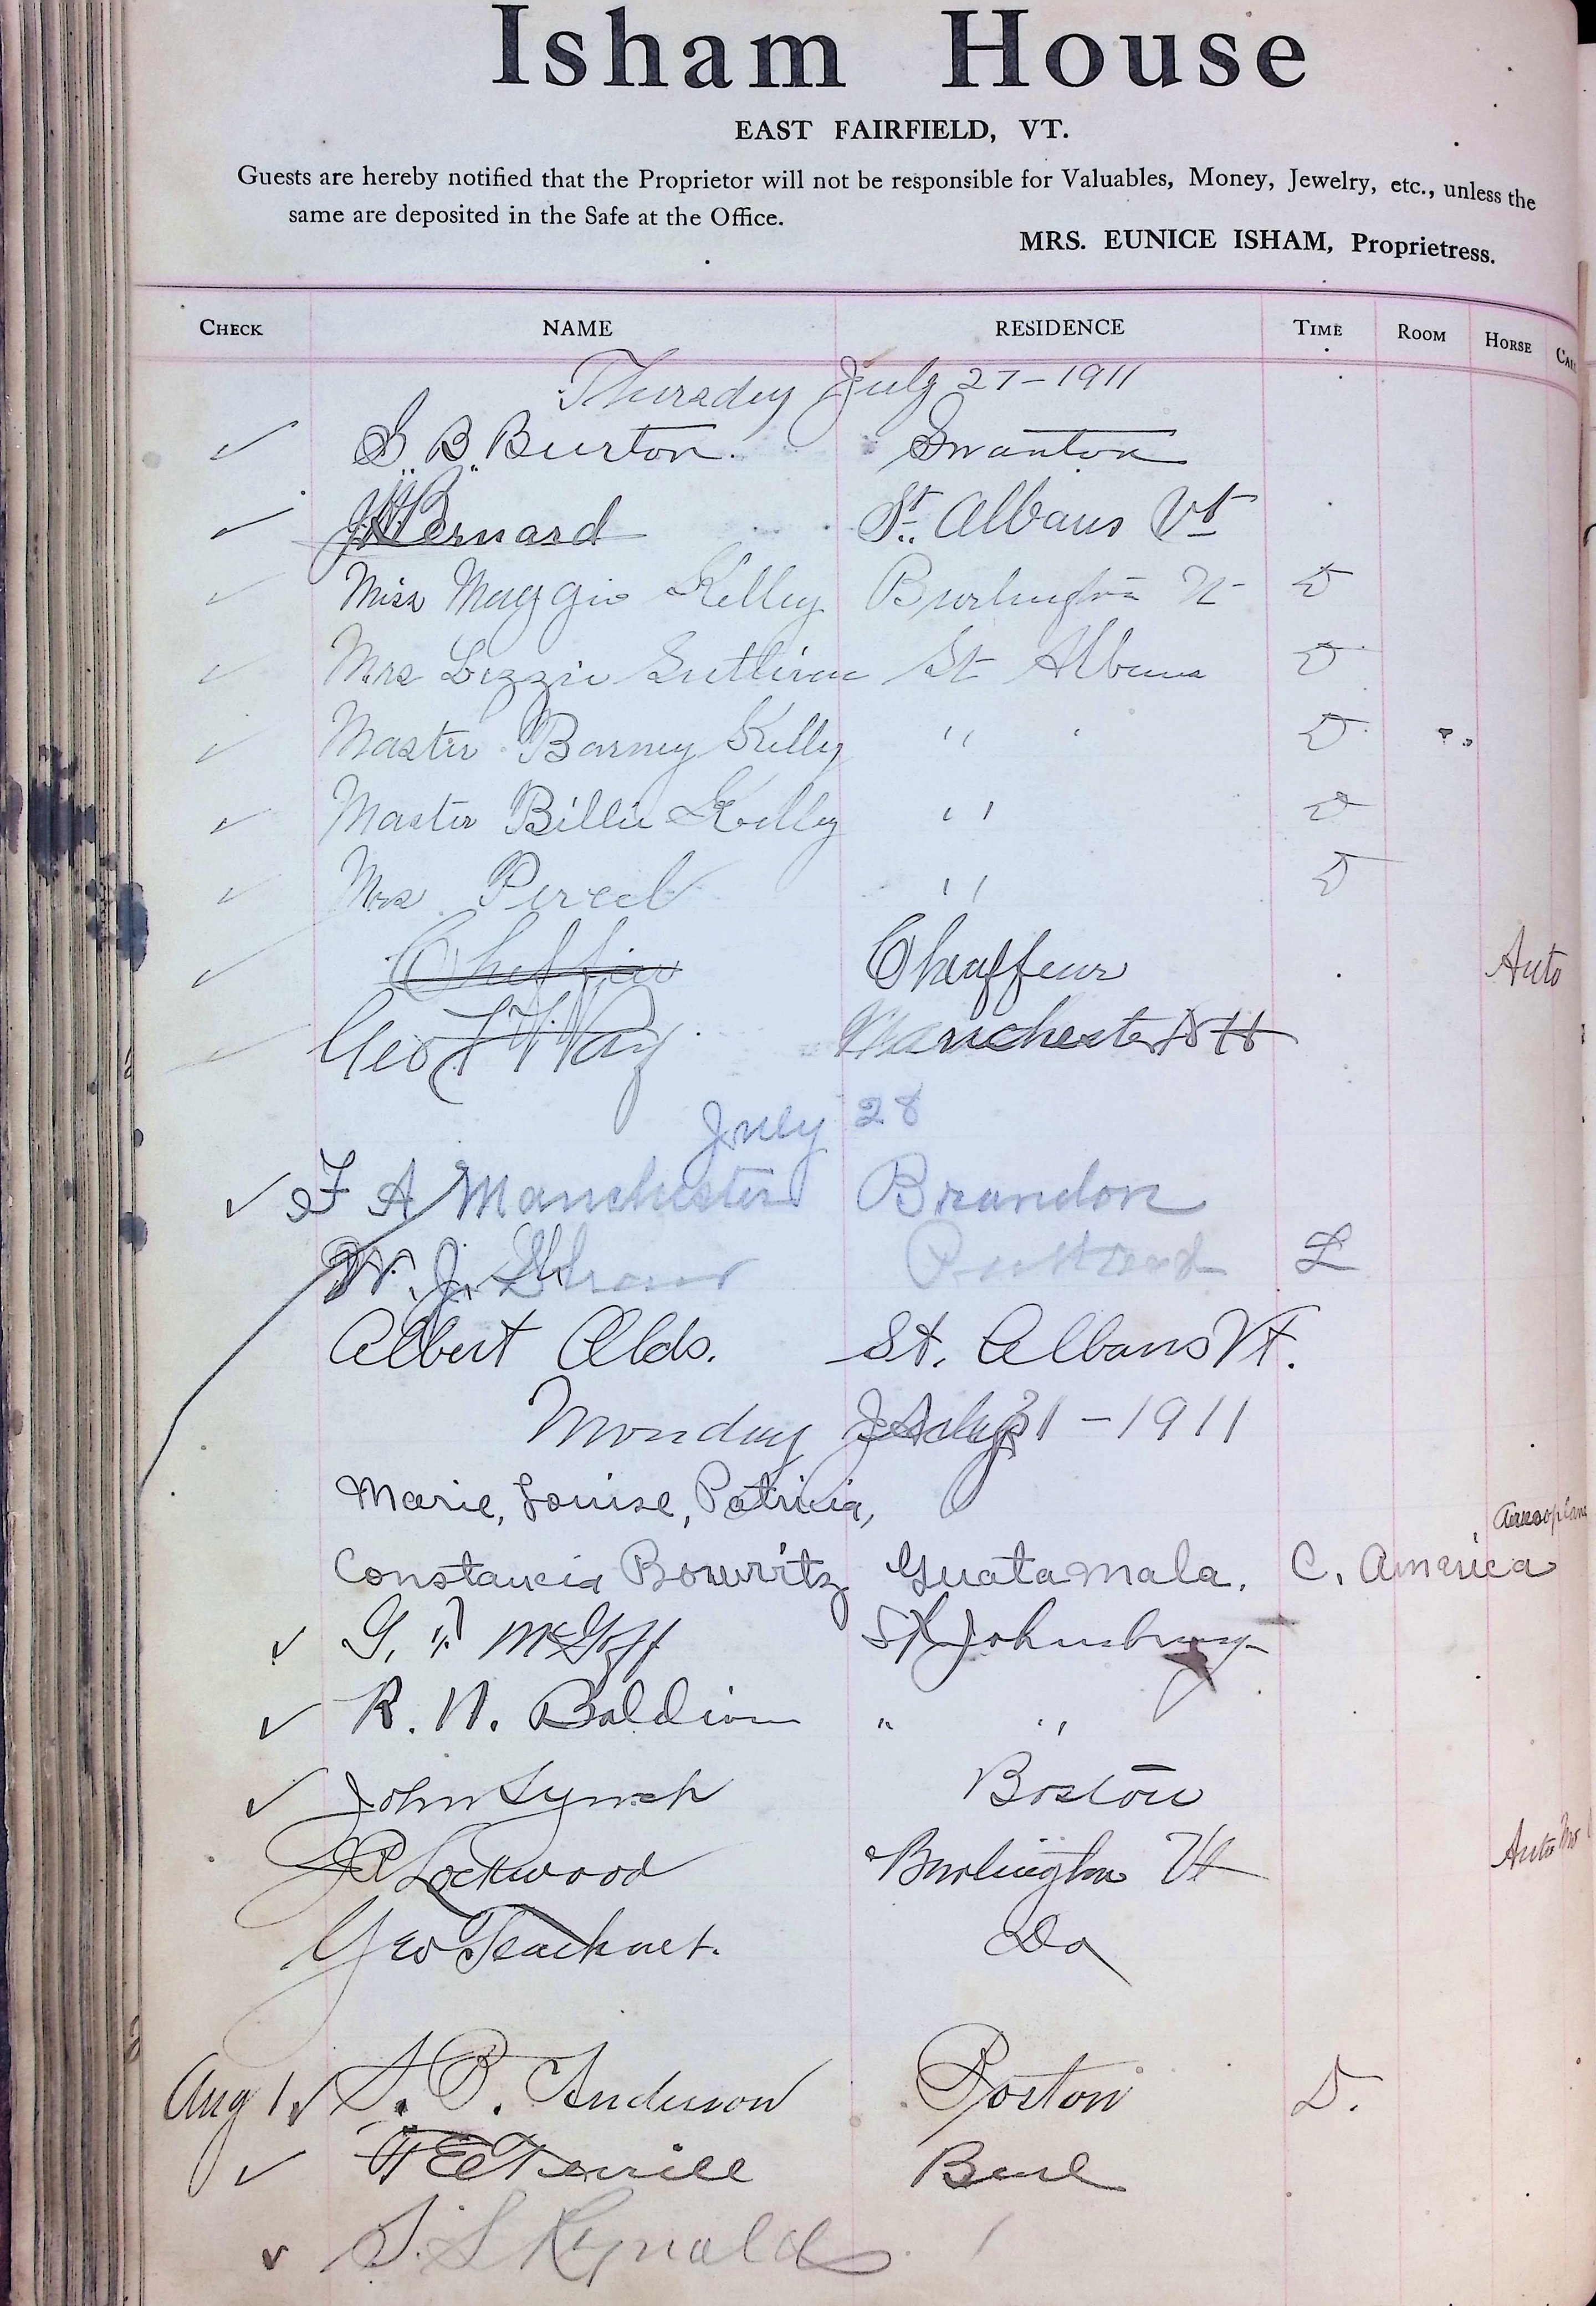 Isham House
EAST FAIRFIELD, VT.
Guests are hereby notified that the Proprietor will not be responsible for Valuables, Money, Jewelry, etc., unless the
same are deposited in the Safe at the Office.
MRS. EUNICE ISHAM, Proprietress.
CHECK NAME RESIDENCE TIME ROOM HORSE
Thursday July 27-1911
G B Burton. Swanton
Bernard St. Albans Vt
Miss Maggie Kelley Burlington Vt D
Mrs Lizzie Sullivan St Albans D
Master Barney Kelly " " D
Master Billie Kelley " D
Mrs " D
Chauffeur Auto
Geo Way Manchester NH
July 28
F A Manchester Brandon
W. J. Shraw Rutland L
Albert Alds. St. Albans Vt.
Monday July 31-1911
Marie, Louise, Patricia, Aeroplane
Constancia Guatamala. C. America
G. McGoff St Johnsbury
R. N. Baldwin " "
John Lynch Boston
Lockwood Burlington Vt Auto
Geo Do
Aug 1 S. B. Anderson Boston D.
Burl
S. L Reynolds